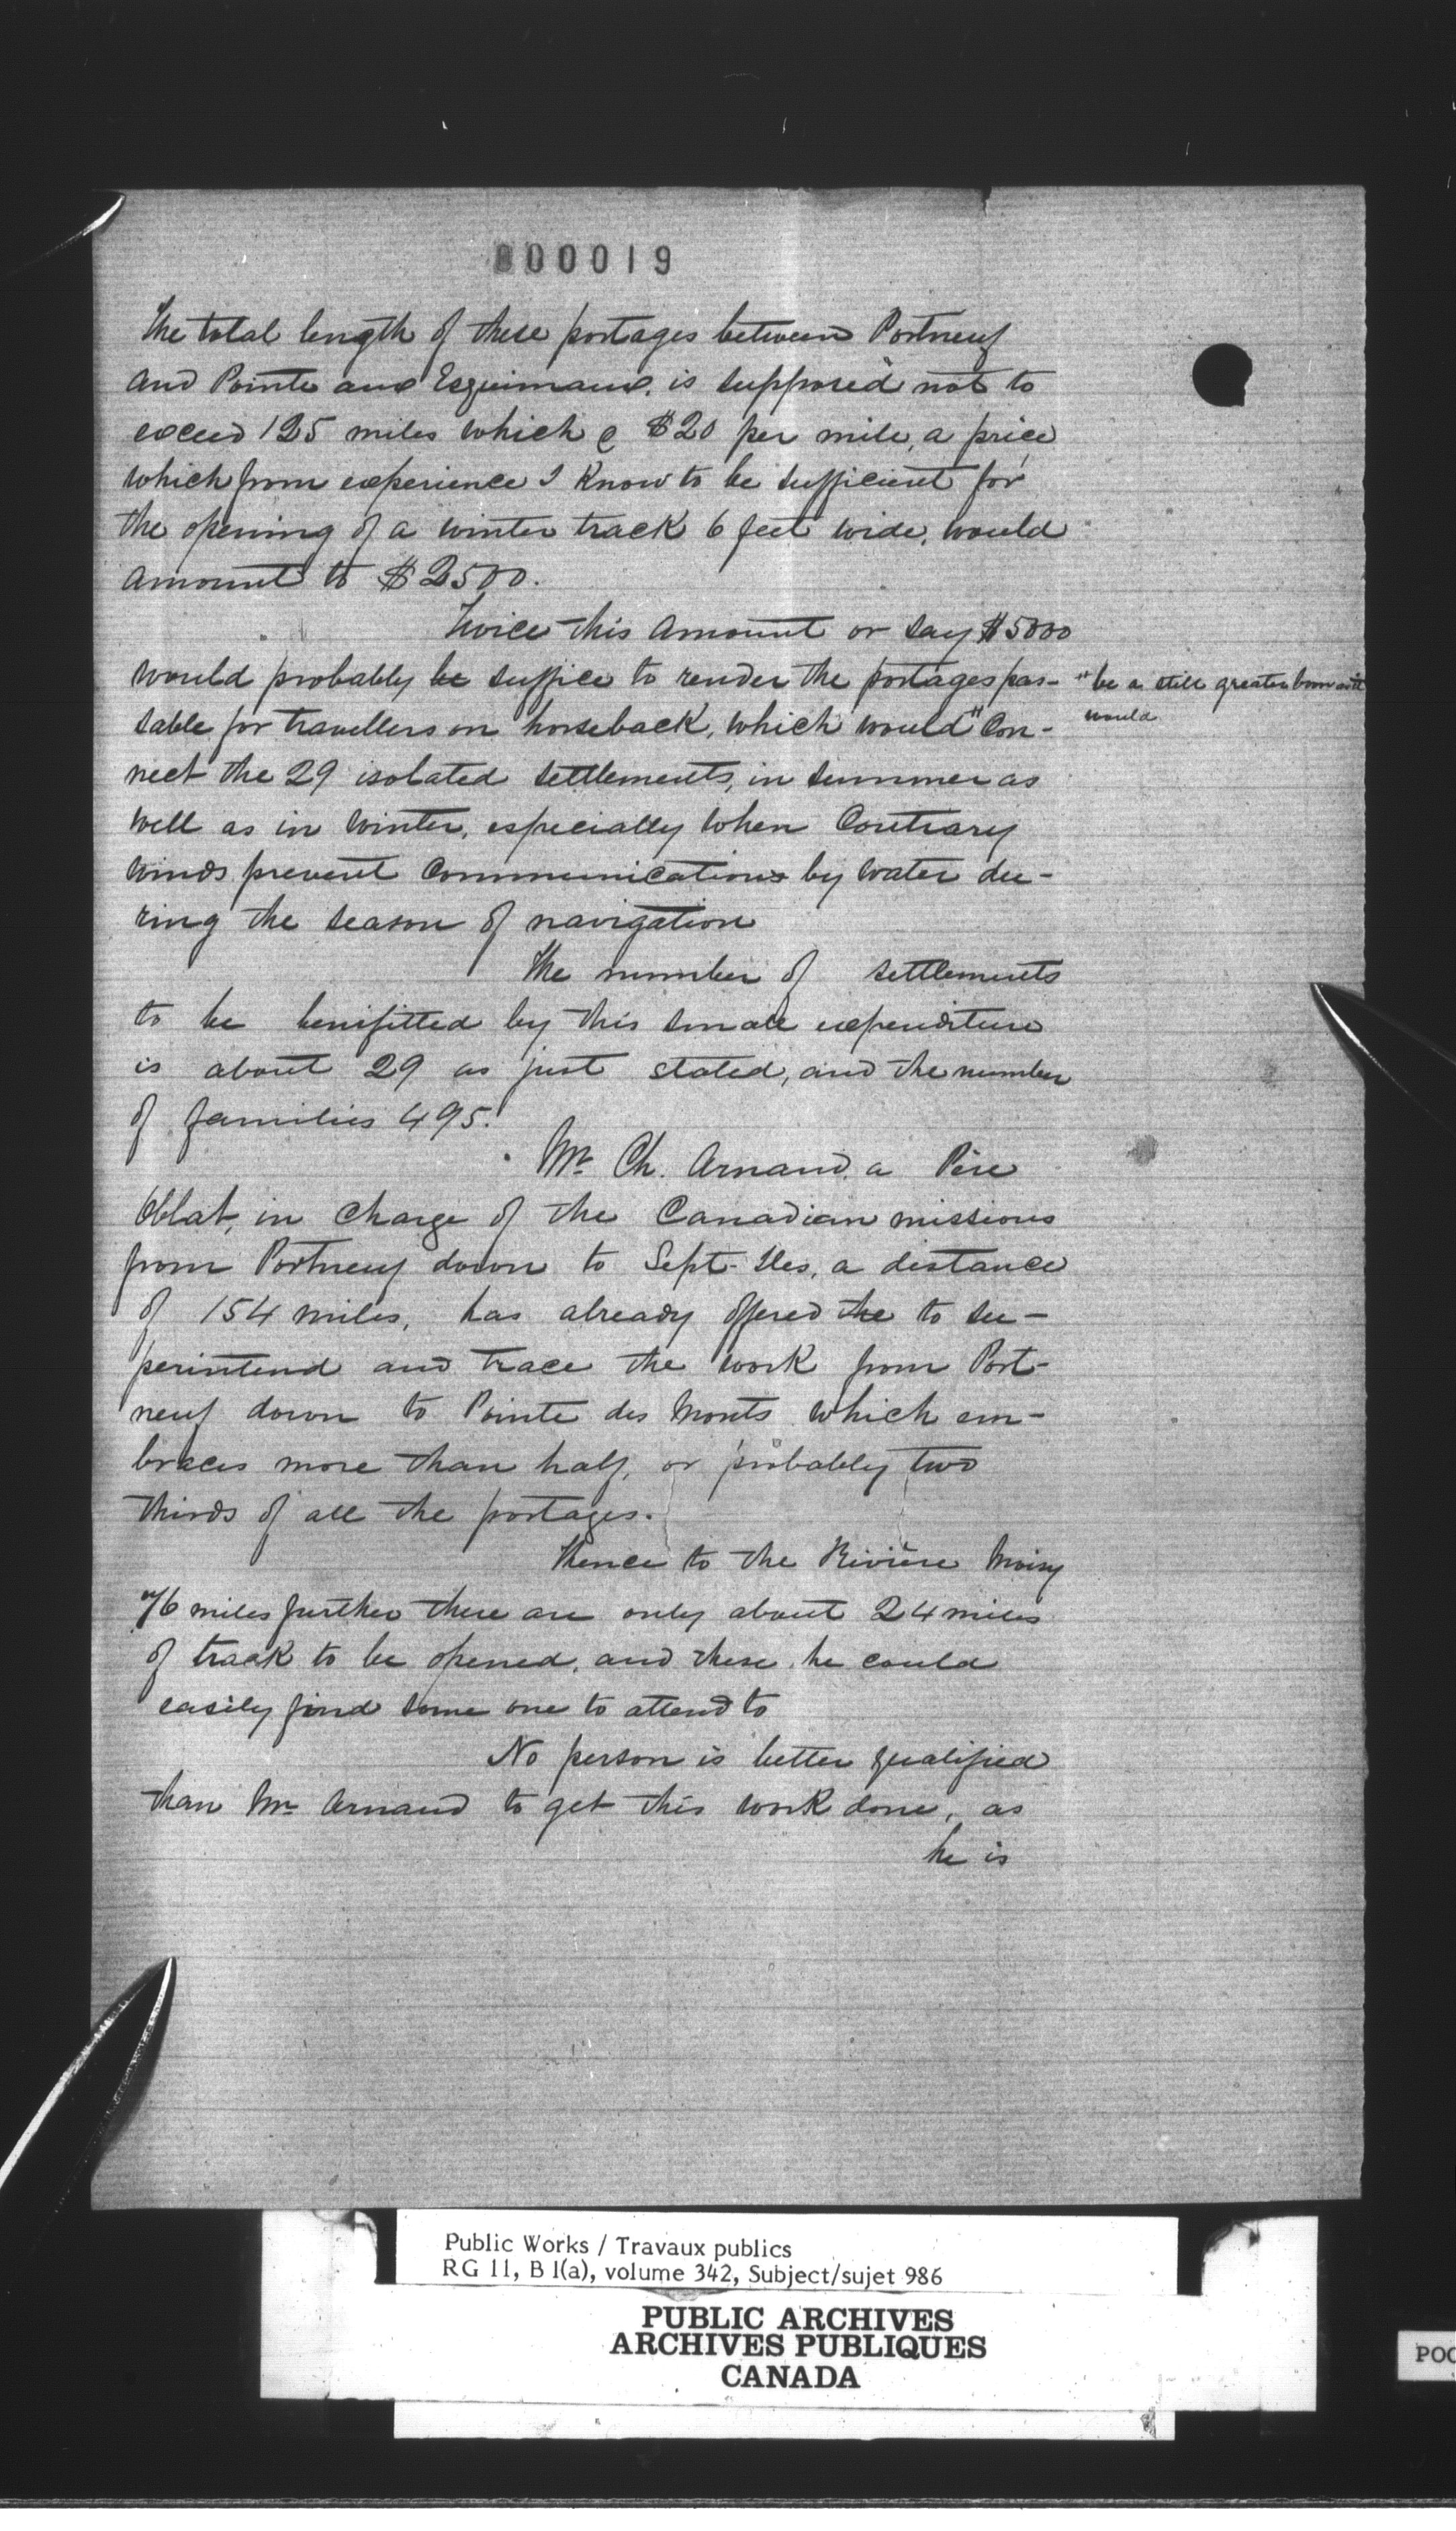 000019
The total length of these portages between Portneuf
and Pointe aux Esquimaux. is supposed not to
exceed 125 miles which @ $20 per mile, a price
which from experience I know to be sufficient for
the opening of a winter track 6 feet wide, would
amount to $2500.
Twice this amount or say $5000
would probably be suffice to render the portages pas-
sable for travellers on horseback, which would " con-
" be a still greater boon as it
would
nect the 29 isolated settlements, in summer as
well as in winter, especially when contrary
winds prevent communications by water du-
ring the season of navigation
The number of settlements
to be benifitted by this small expenditure
is about 29 as just stated, and the number
of families 495.
Mr Ch. Arnaud, a Père
Oblat, in charge of the Canadian missions
from Portneuf down to Sept-Iles, a distance
of 154 miles, has already offered the to su-
perintend and trace the work from Port-
neuf down to Pointe des Monts which em-
braces more than half, or probably two
thirds of all the portages.
Thence to the Rivière Moisy
76 miles further there are only about 24 miles
of track to be opened, and these he could
easily find some one to attend to
No person is better qualified
than Mr Arnaud to get this work done, as
he is
Public Works / Travaux publics
RG 11, B 1(a), volume 342, Subject/sujet 986
PUBLIC ARCHIVES
ARCHIVES PUBLIQUES
CANADA